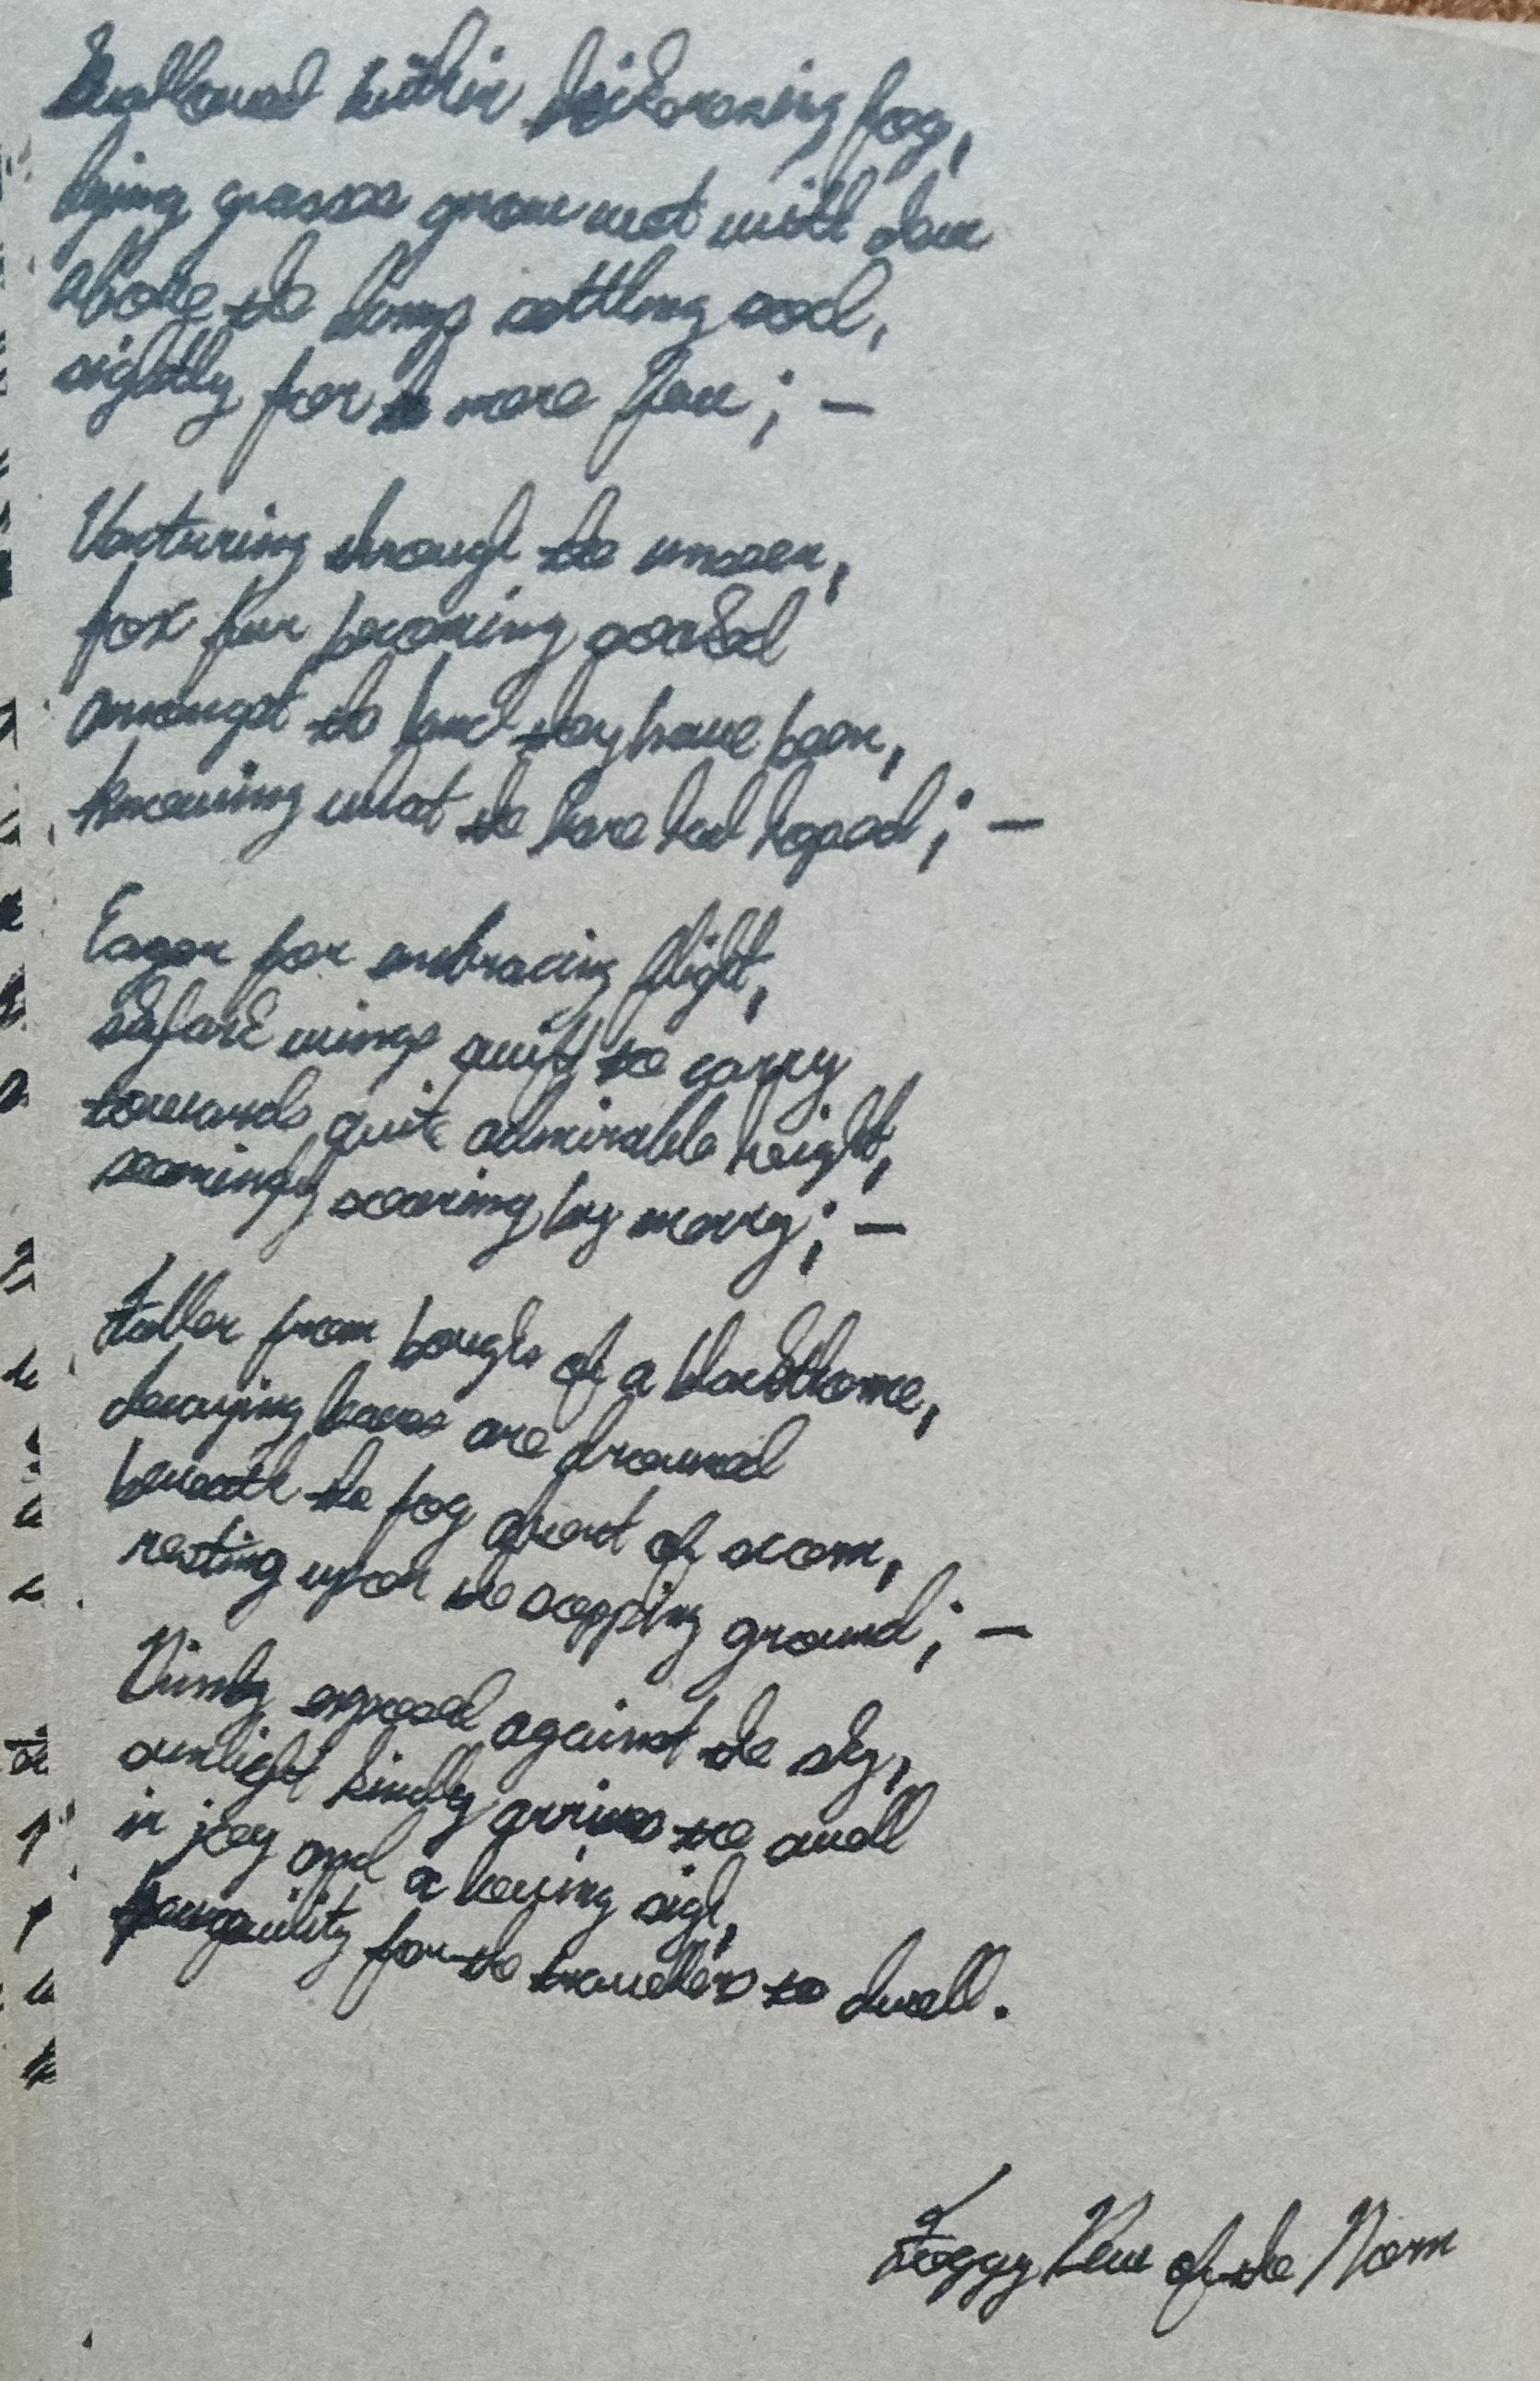 Swallowed within thickening fog,
lying grasses grow wet with dew
above the damp settling sod,
sightly for a more few; —
Venturing through the unseen,
fox fur becoming soaked
amongst the land they have been,
knowing what the hare had hoped; —
Eager for embracing flight,
skylark wings quift to carry
towards quite admirable height,
seemingly soaring by merry; —
Fallen from boughs of a blackthorne,
decaying leaves are drowned
beneath the fog absent of scorn,
resting upon the sopping ground; —
Dimly exposed against the sky,
sunlight kindly arrives to swell
in joy and a loving sigh,
tranquility for the travellers to dwell.
Foggy Dew of the Morn